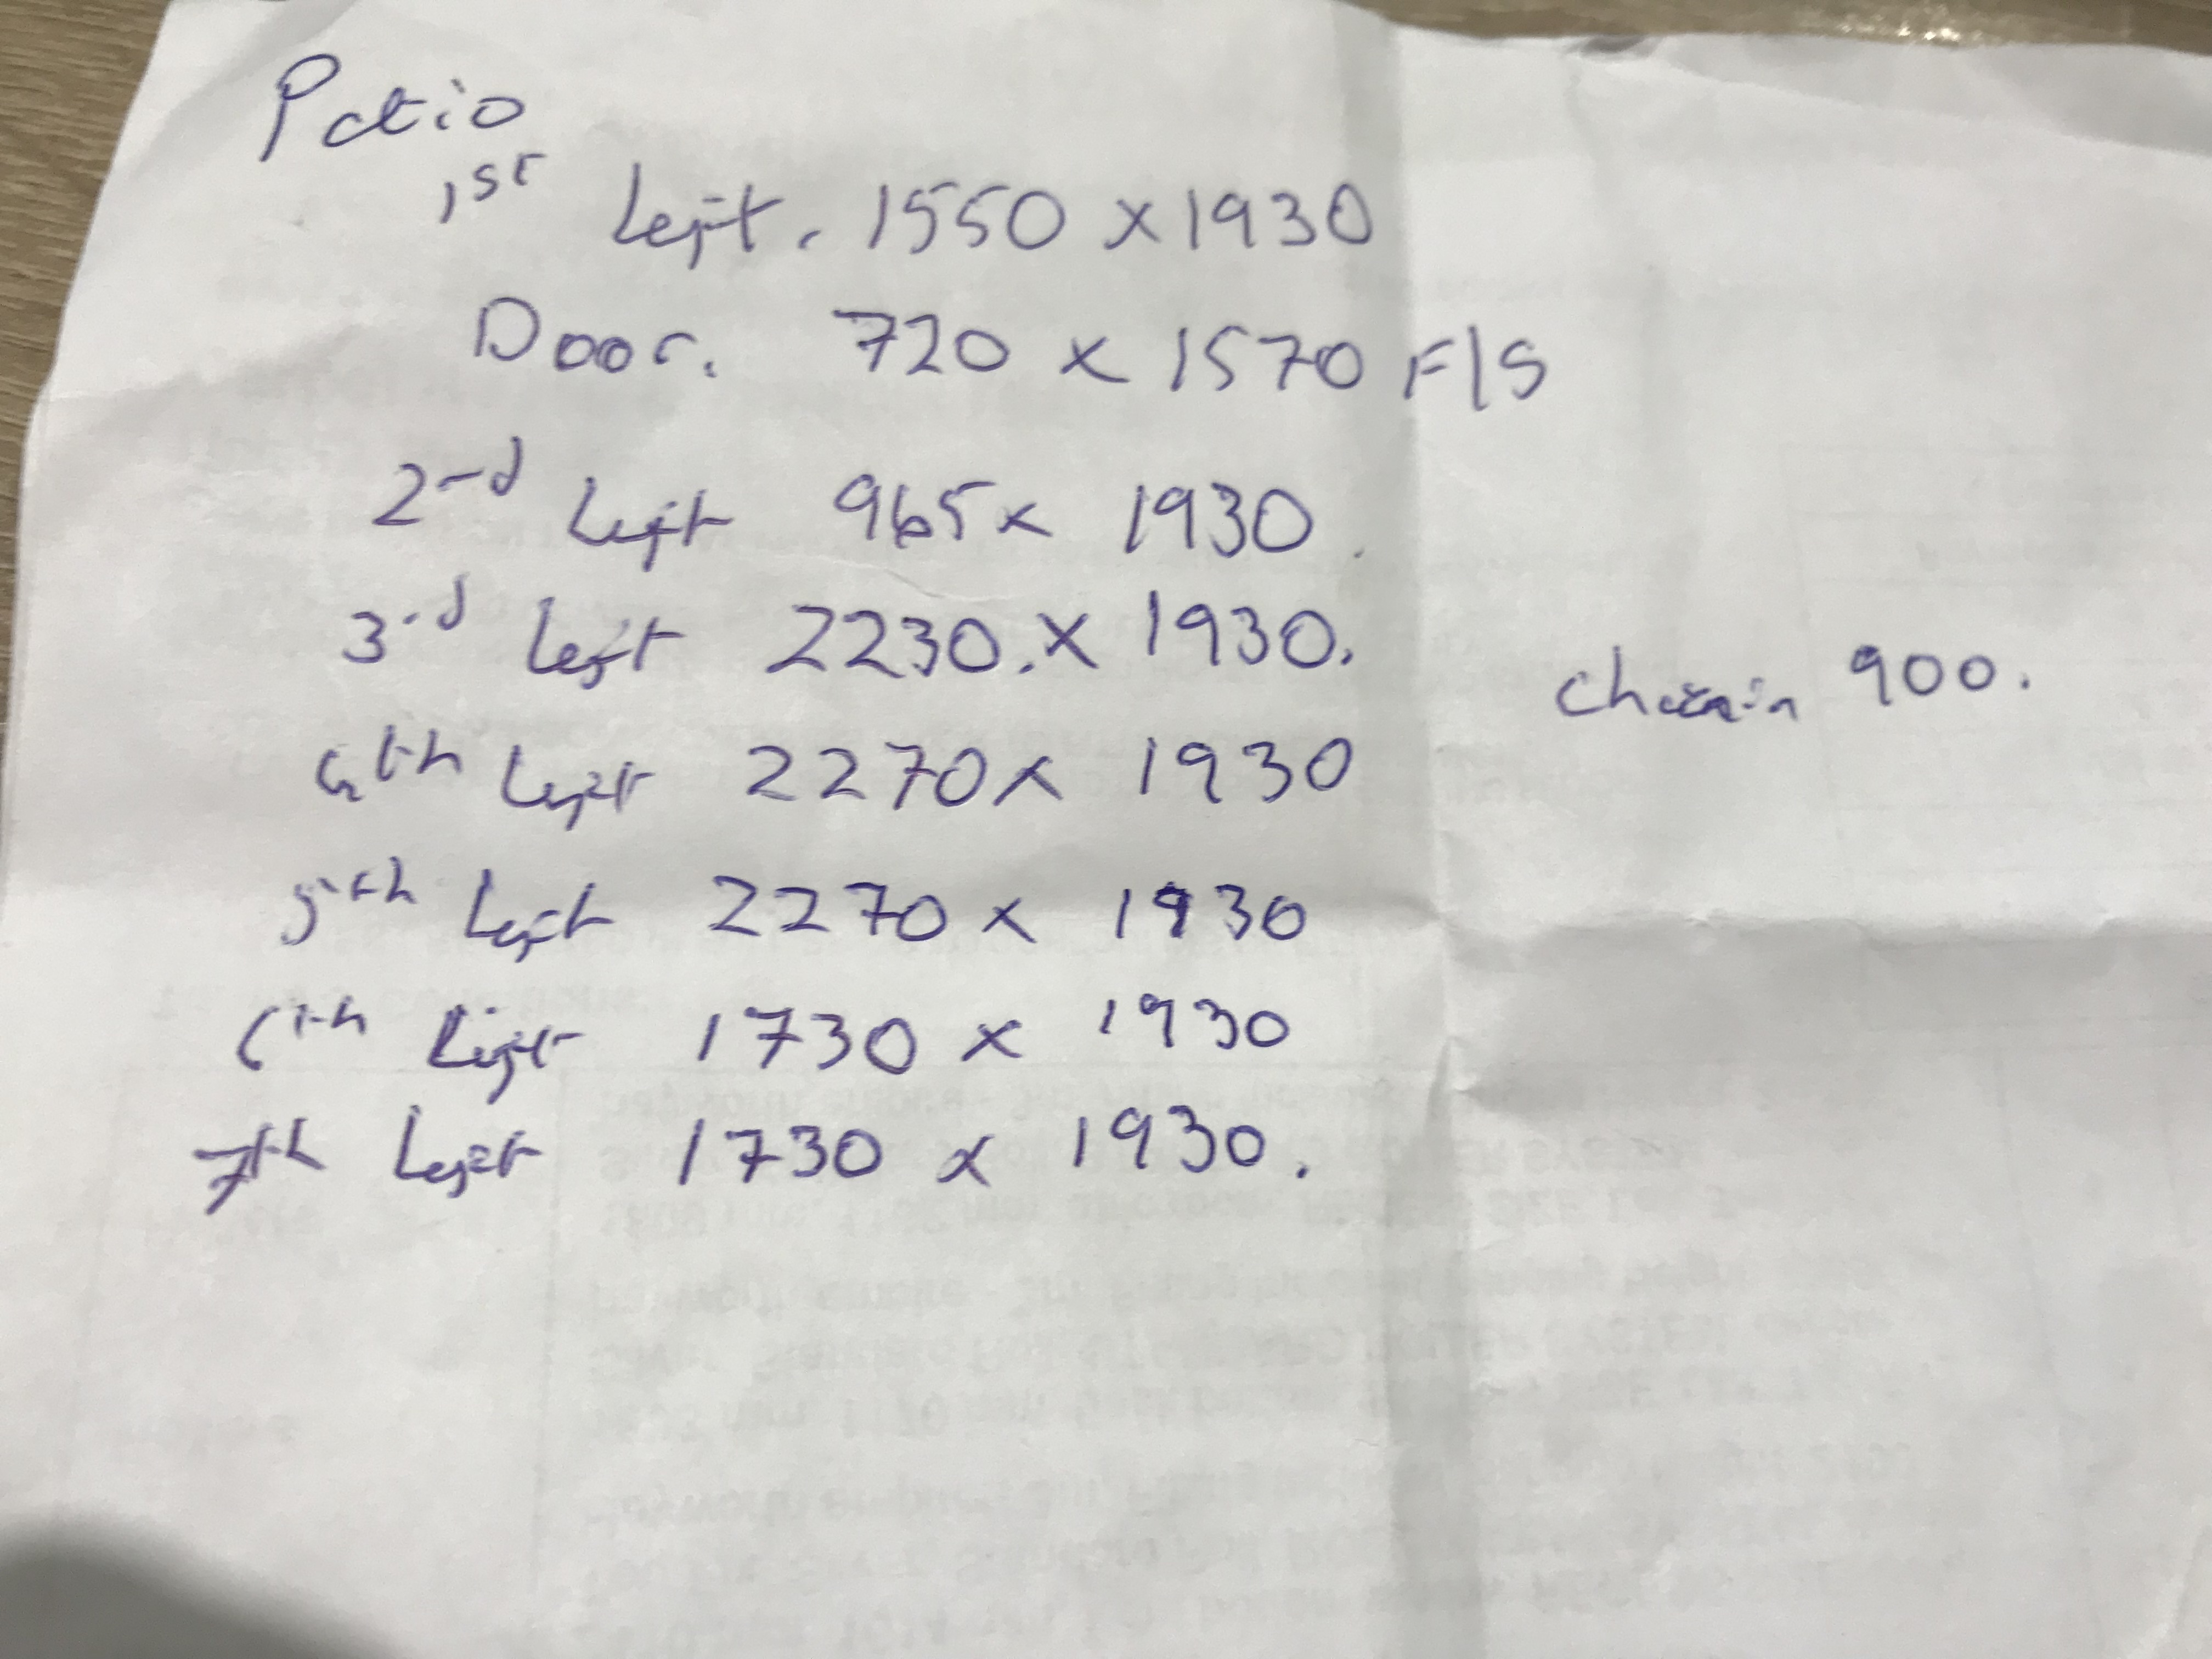 Patio
1st Left. 1550 x 1930
Door. 720 x 1570 F/S
2nd Left 965 x 1930
3rd Left 2230. x 1930.
Chain 900.
4th Left 2270 x 1930
5th Left 2270 x 1930
6th Left 1730 x 1930
7th Left 1730 x 1930.